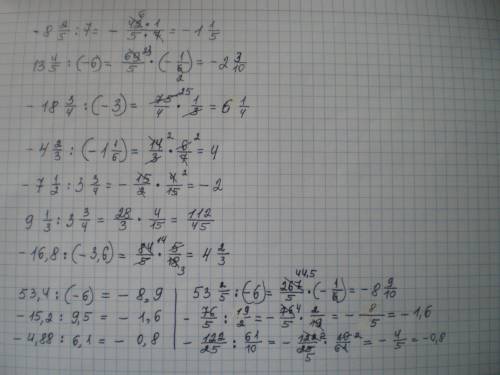 - 8 2/5 : 7 = - 42 6 · 1 / 5 · 7 = - 1 1/5
13 4/5 : (-6) = 69 23/5 · (- 1/6 2) = - 2 3/10
- 18 3/4 : (-3) = 75 25/4 · 1/3 = 6 1/4
- 4 2/3 : (- 1 1/6) = 14 2/3 · 6 2/7 = 4
- 7 1/2 : 3 3/4 = - 15/2 · 4 2/15 = - 2
9 1/3 : 3 3/4 = 28/3 · 4/15 = 112/45
- 16,8 : (-3,6) = 84 14/5 · 5/18 3 = 4 2/3
53,4 : (-6) = - 8,9
- 15,2 : 9,5 = - 1,6
- 4,88 : 6,1 = - 0,8
53 2/5 : (-6) = 267 44,5/5 · (- 1/6) = - 8 9/10
- 76/5 : 19/2 = - 76 4/5 · 2/19 = - 8/5 = - 1,6
- 122/25 : 61/10 = - 122 2/25 5 · 10 2/61 = - 4/5 = - 0,8